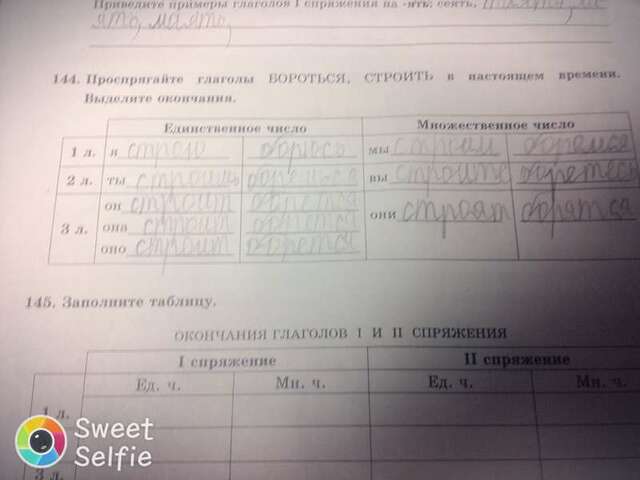 Приведите примеры глаголов I спряжения на -ять: сеять,
ять, маять,
144. Проспрягайте глаголы БОРОТЬСЯ, СТРОИТЬ в настоящем времени.
Выделите окончания.
Единственное число Множественное число
1 л. я строю борюсь мы строим боремся
2 л. ты строишь борешься вы строите боретесь
он строит борется
3 л. она строит борется они строят борятся
оно строит борется
145. Заполните таблицу.
ОКОНЧАНИЯ ГЛАГОЛОВ I И II СПРЯЖЕНИЯ
I спряжение II спряжение
Ед. ч. Мн. ч. Ед. ч. Мн. ч.
1 л.
3 л.
Sweet
Selfie